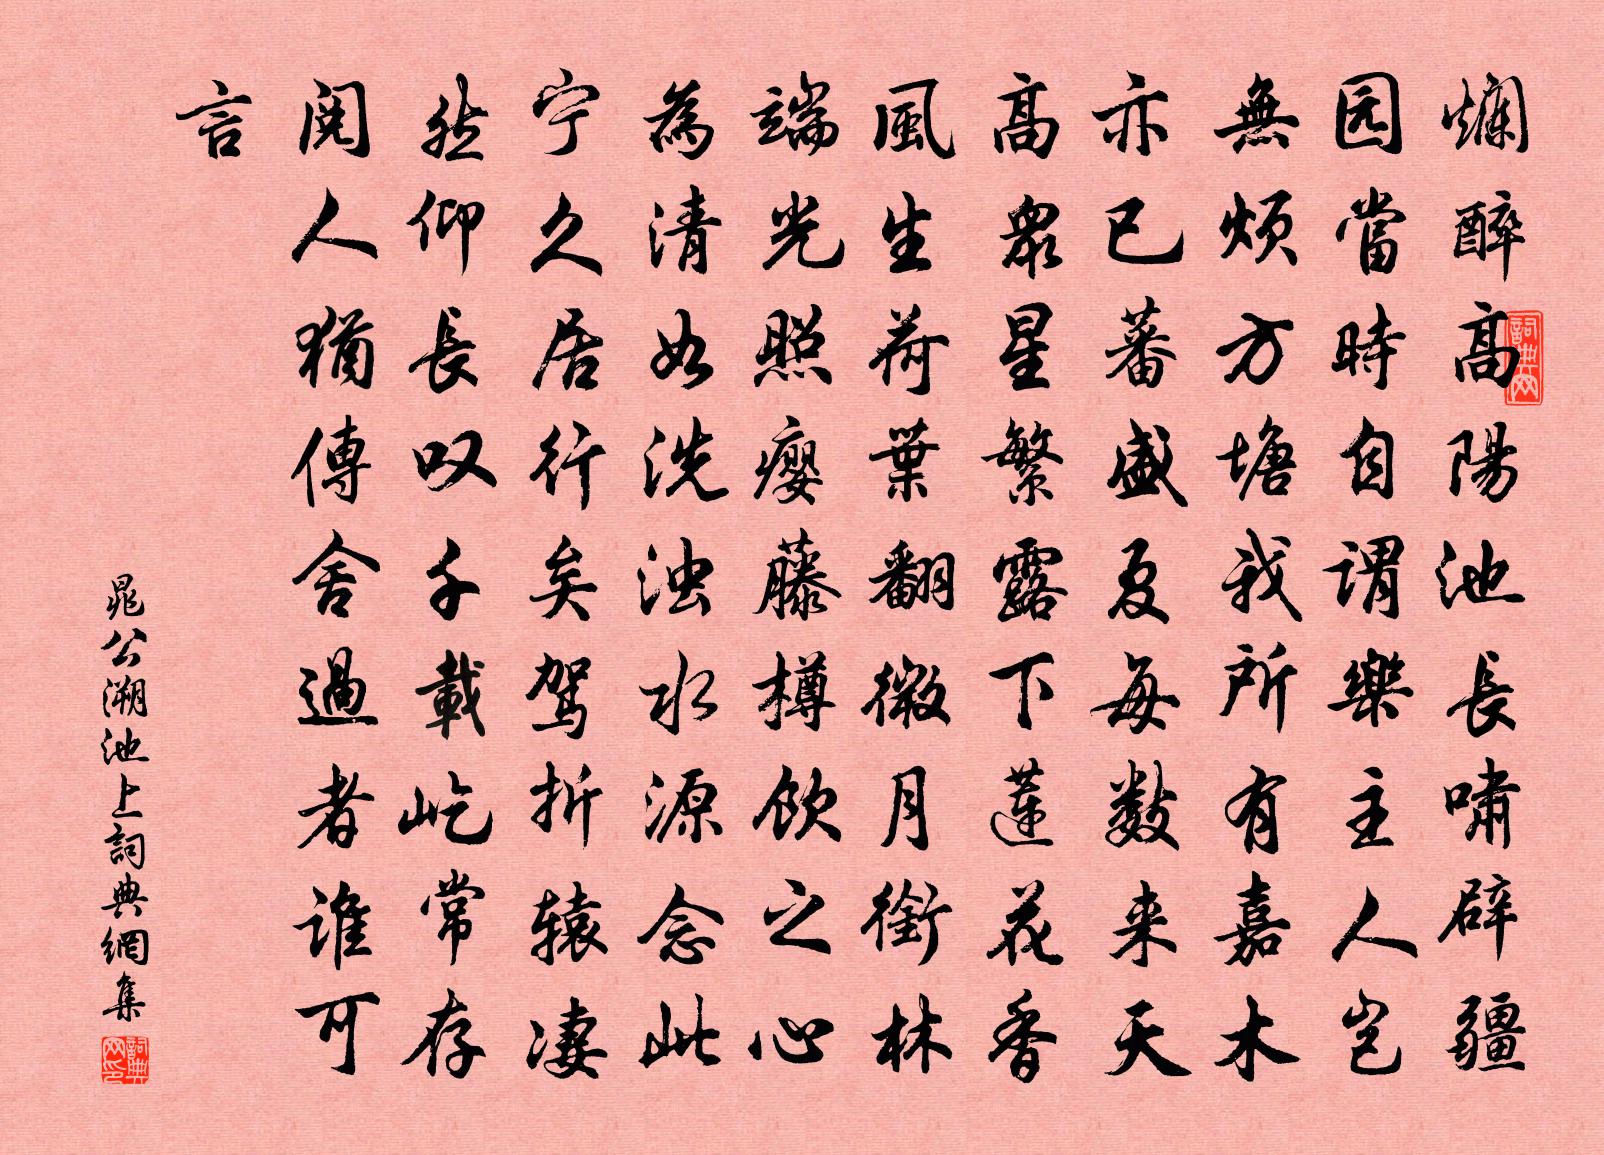 爛醉高陽池長嘯辟疆
詞典网
园當時自謂樂主人岂
無煩方塘我所有嘉木
亦已蕃盛夏每數来天
高衆星繁露下蓮花香
風生荷葉翻微月銜林
端光照癭藤樽飲之心
為清如洗浊水源念此
宁久居行矣驾折辕凄
然仰長叹千載屹常存
阅人猶傳舍過者谁可
言
晁公溯池上詞典網集
詞典网印